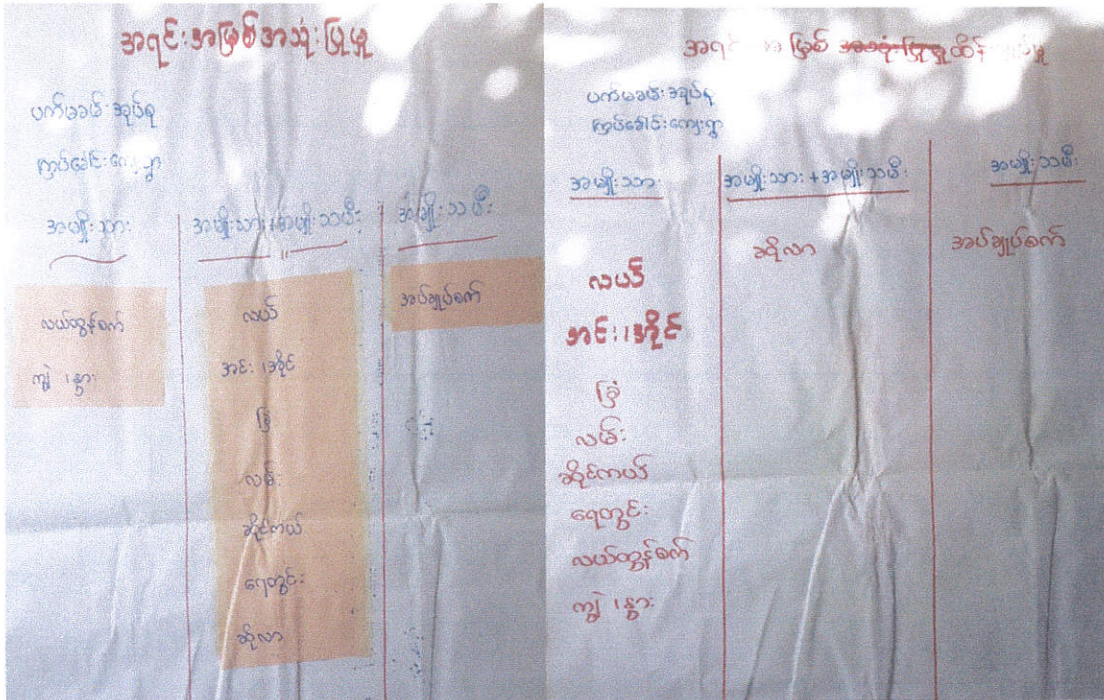 အရင်းအမြစ်အသုံးပြုမှု
ပက်မခမ်းအုပ်စု
ကြပ်ခေါင်းကျေးရွာ
အမျိုးသား
အမျိုးသား+အမျိုးသမီး
အမျိုးသမီး
လယ်ထွန်စက်
ကျွဲ ၊နွား
လယ်
အင်း ၊အိုင်
ခြံ
လမ်း
ဆိုင်ကယ်
ရေတွင်း
ဆိုလာ
အပ်ချုပ်စက်
အရင်းအမြစ် အသုံးပြုမှုထိန်းချုပ်မှု
ပက်မခမ်းအုပ်စု
ကြပ်ခေါင်းကျေးရွာ
အမျိုးသား
အမျိုးသား+အမျိုးသမီး
အမျိုးသမီး
လယ်
အင်း၊အိုင်
ခြံ
လမ်း
ဆိုင်ကယ်
ရေတွင်း
လယ်ထွန်စက်
ကျွဲ ၊နွား
ဆိုလာ
အပ်ချုပ်စက်